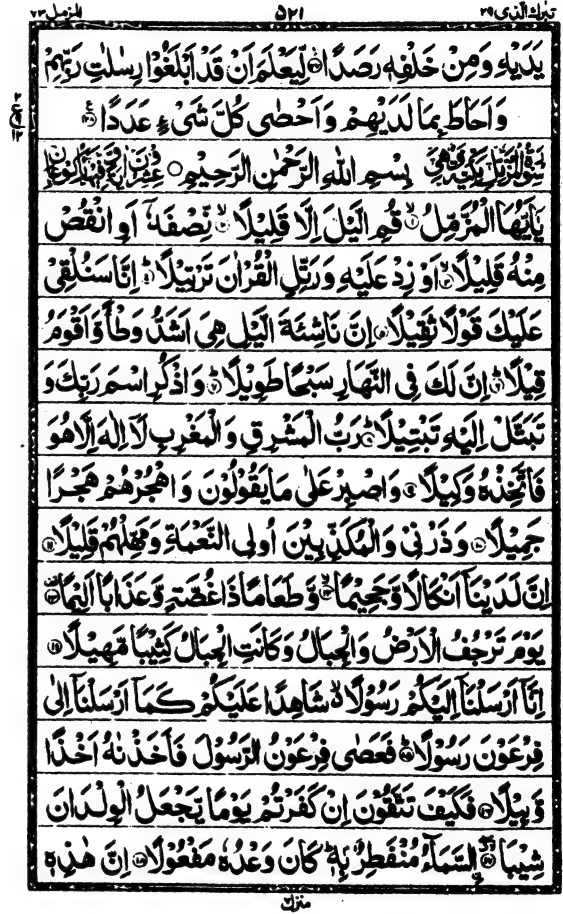 تبٰرك الذي ٢٩ ٥٢١ المزمل ٧٣
يَدَيْهِ وَمِنْ خَلْفِهٖ رَصَدًا ۙ۝٢٧ لِّيَعْلَمَ اَنْ قَدْ اَبْلَغُوْا رِسٰلٰتِ رَبِّهِمْ
وَاَحَاطَ بِمَا لَدَيْهِمْ وَاَحْصٰى كُلَّ شَیْءٍ عَدَدًا ۝٢٨
بِسْمِ اللّٰهِ الرَّحْمٰنِ الرَّحِيْمِ ۝
يٰۤاَيُّهَا الْمُزَّمِّلُ ۙ۝١ قُمِ الَّيْلَ اِلَّا قَلِيْلًا ۙ۝٢ نِّصْفَهٗۤ اَوِ انْقُصْ
مِنْهُ قَلِيْلًا ۙ۝٣ اَوْ زِدْ عَلَيْهِ وَرَتِّلِ الْقُرْاٰنَ تَرْتِيْلًا ؕ۝٤ اِنَّا سَنُلْقِیْ
عَلَيْكَ قَوْلًا ثَقِيْلًا ۝٥ اِنَّ نَاشِئَةَ الَّيْلِ هِیَ اَشَدُّ وَطْاً وَّاَقْوَمُ
قِيْلًا ؕ۝٦ اِنَّ لَكَ فِی النَّهَارِ سَبْحًا طَوِيْلًا ؕ۝٧ وَاذْكُرِ اسْمَ رَبِّكَ وَ
تَبَتَّلْ اِلَيْهِ تَبْتِيْلًا ؕ۝٨ رَبُّ الْمَشْرِقِ وَالْمَغْرِبِ لَاۤ اِلٰهَ اِلَّا هُوَ
فَاتَّخِذْهُ وَكِيْلًا ۝٩ وَاصْبِرْ عَلٰى مَا يَقُوْلُوْنَ وَاهْجُرْهُمْ هَجْرًا
جَمِيْلًا ۝١٠ وَذَرْنِیْ وَالْمُكَذِّبِيْنَ اُولِی النَّعْمَةِ وَمَهِّلْهُمْ قَلِيْلًا ۝١١
اِنَّ لَدَيْنَاۤ اَنْكَالًا وَّجَحِيْمًا ۙ۝١٢ وَّطَعَامًا ذَا غُصَّةٍ وَّعَذَابًا اَلِيْمًا ۝١٣
يَوْمَ تَرْجُفُ الْاَرْضُ وَالْجِبَالُ وَكَانَتِ الْجِبَالُ كَثِيْبًا مَّهِيْلًا ۝١٤
اِنَّاۤ اَرْسَلْنَاۤ اِلَيْكُمْ رَسُوْلًا ۙ شَاهِدًا عَلَيْكُمْ كَمَاۤ اَرْسَلْنَاۤ اِلٰى
فِرْعَوْنَ رَسُوْلًا ؕ۝١٥ فَعَصٰى فِرْعَوْنُ الرَّسُوْلَ فَاَخَذْنٰهُ اَخْذًا
وَّبِيْلًا ۝١٦ فَكَيْفَ تَتَّقُوْنَ اِنْ كَفَرْتُمْ يَوْمًا يَّجْعَلُ الْوِلْدَانَ
شِيْبَا ۝١٧ اۨلسَّمَآءُ مُنْفَطِرٌۢ بِهٖ ؕ كَانَ وَعْدُهٗ مَفْعُوْلًا ۝١٨ اِنَّ هٰذِهٖ
منزل